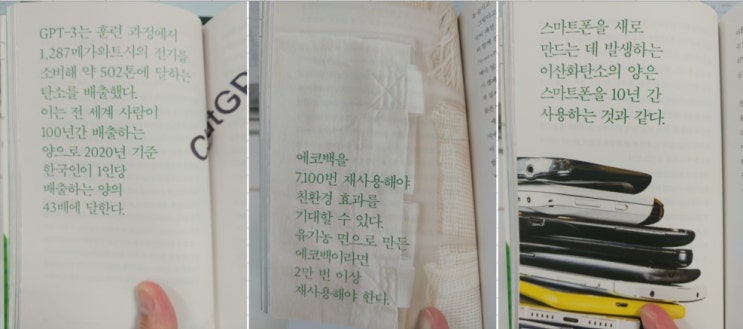 GPT-3는 훈련 과정에서
1,287메가와트시의 전기를
소비해 약 502톤에 달하는
탄소를 배출했다.
이는 전 세계 사람이
100년간 배출하는
양으로 2020년 기준
한국인이 1인당
배출하는 양의
43배에 달한다.
에코백을
7,100번 재사용해야
친환경 효과를
기대할 수 있다.
유기농 면으로 만든
에코백이라면
2만 번 이상
재사용해야 한다.
스마트폰을 새로
만드는 데 발생하는
이산화탄소의 양은
스마트폰을 10년 간
사용하는 것과 같다.